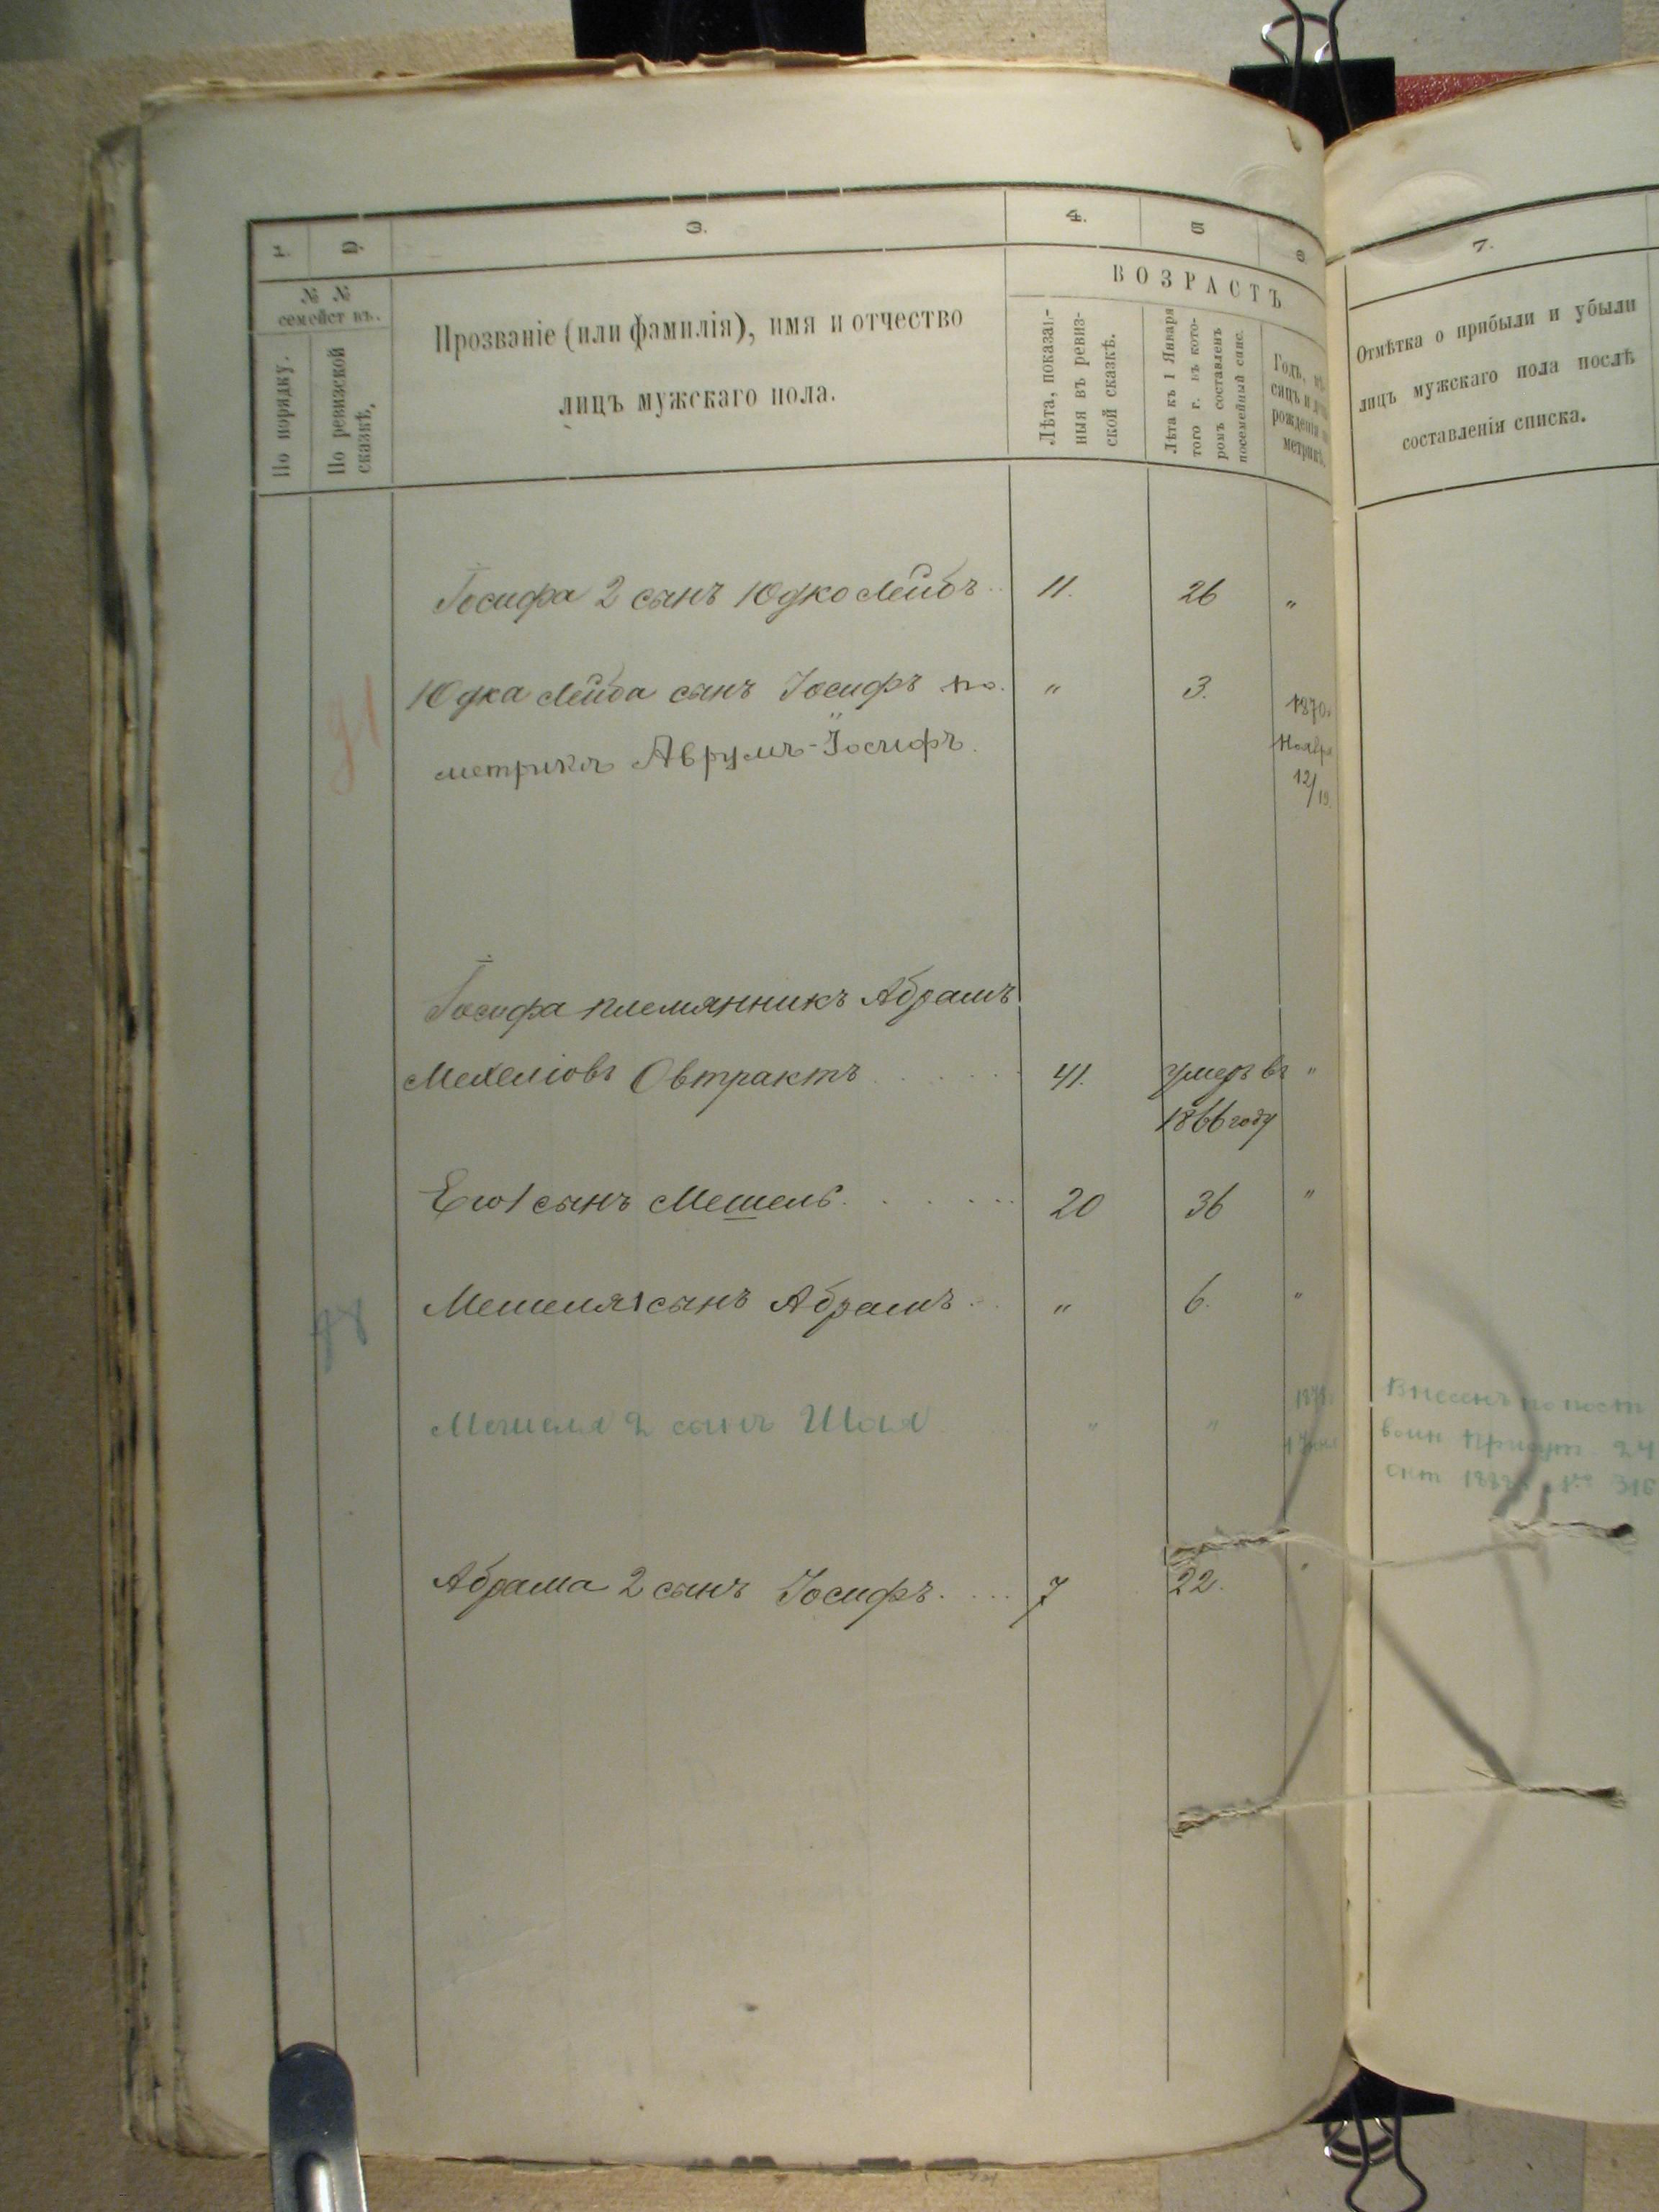 1. 2. 3. 4. 5 6 7.
№ № семействъ.
По порядку.
По ревизской сказкѣ.
Прозваніе (или фамилія), имя и отчество
лицъ мужскаго пола.
ВОЗРАСТЪ
Лѣта, показан-
ныя въ ревиз-
ской сказкѣ.
Лѣта къ 1 Января
того г. въ кото-
ромъ составленъ
посемейный спис.
Годъ, мѣ
сяцъ и д
рожденія
метрик
Отмѣтка о прибыли и убыли
лицъ мужскаго пола послѣ
составленія списка.
Іосифа 2 сынъ Юдко Лейбъ.. 11. 26 "
Юдка Лейба сынъ Іосифъ по. " 3. 1870.
91
метрикѣ Аврумъ-Іосифъ. Ноябр
12/19.
Іосифа племянникъ Абрамъ
Мехеліовъ Овтрактъ 41. Умеръ въ "
1866 году
Его 1 сынъ Мешель. 20 36 "
Мешеля 1 сынъ Абрамъ. " 6. "
78
Мешеля 2 сынъ Шая " "
Внесенъ по пост
воин присут 24
окт 188 № 316
Абрама 2 сынъ Іосифъ. 7 22. "